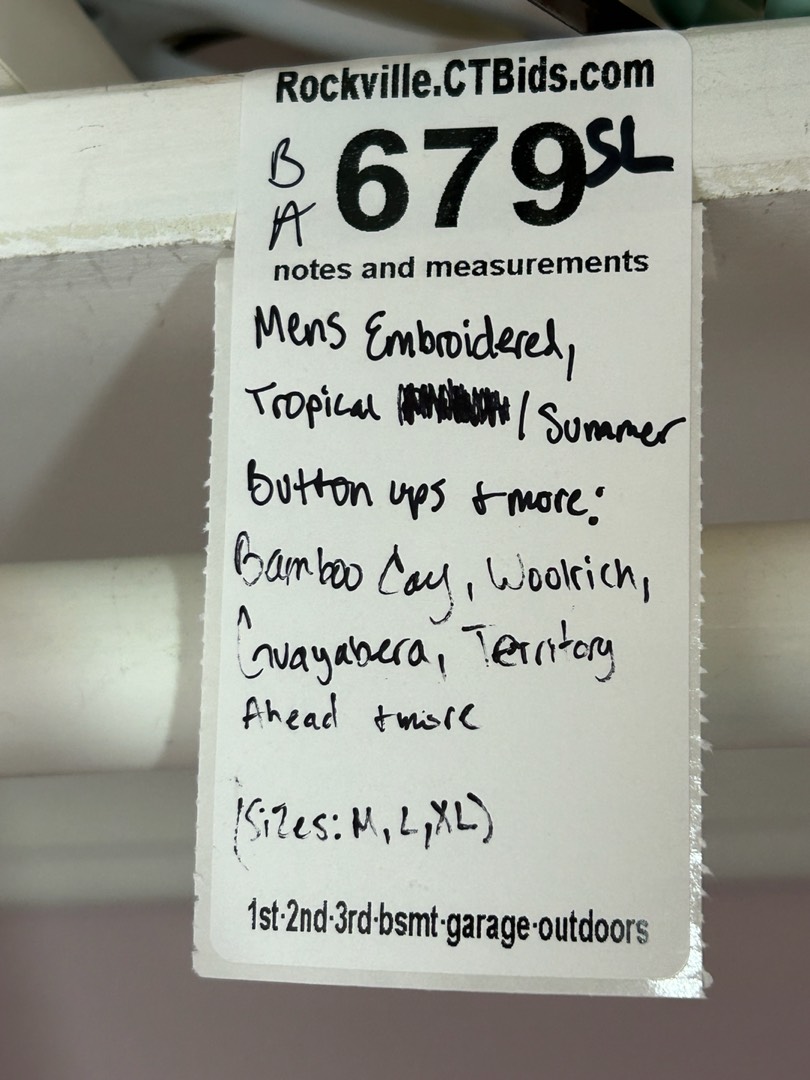 Rockville.CTBids.com
B
A
679 SL
notes and measurements
Mens Embroidered,
Tropical / Summer
Button ups + more:
Bamboo Cay, Woolrich,
Guayabera, Territory
Ahead + more
(Sizes: M, L, XL)
1st·2nd·3rd·bsmt·garage·outdoors